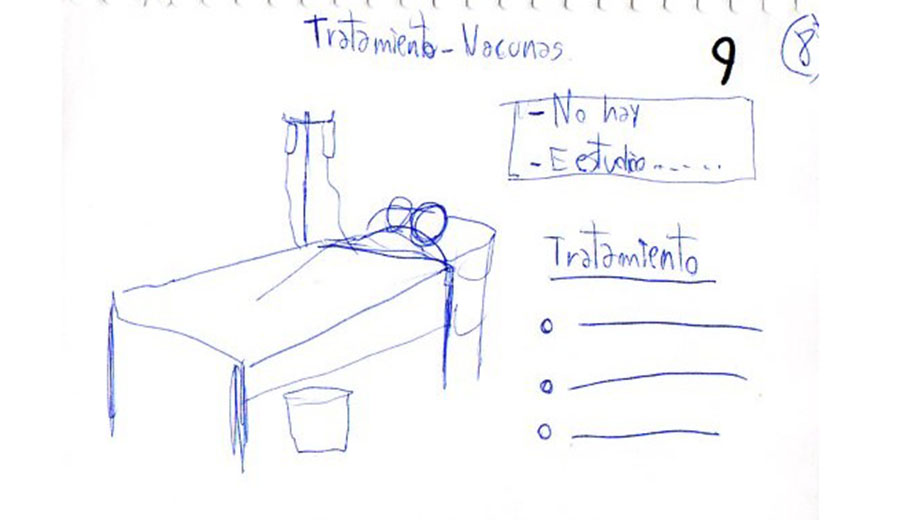 Tratamiento - Vacunas
9
8
- No hay
- E estudio......
Tratamiento